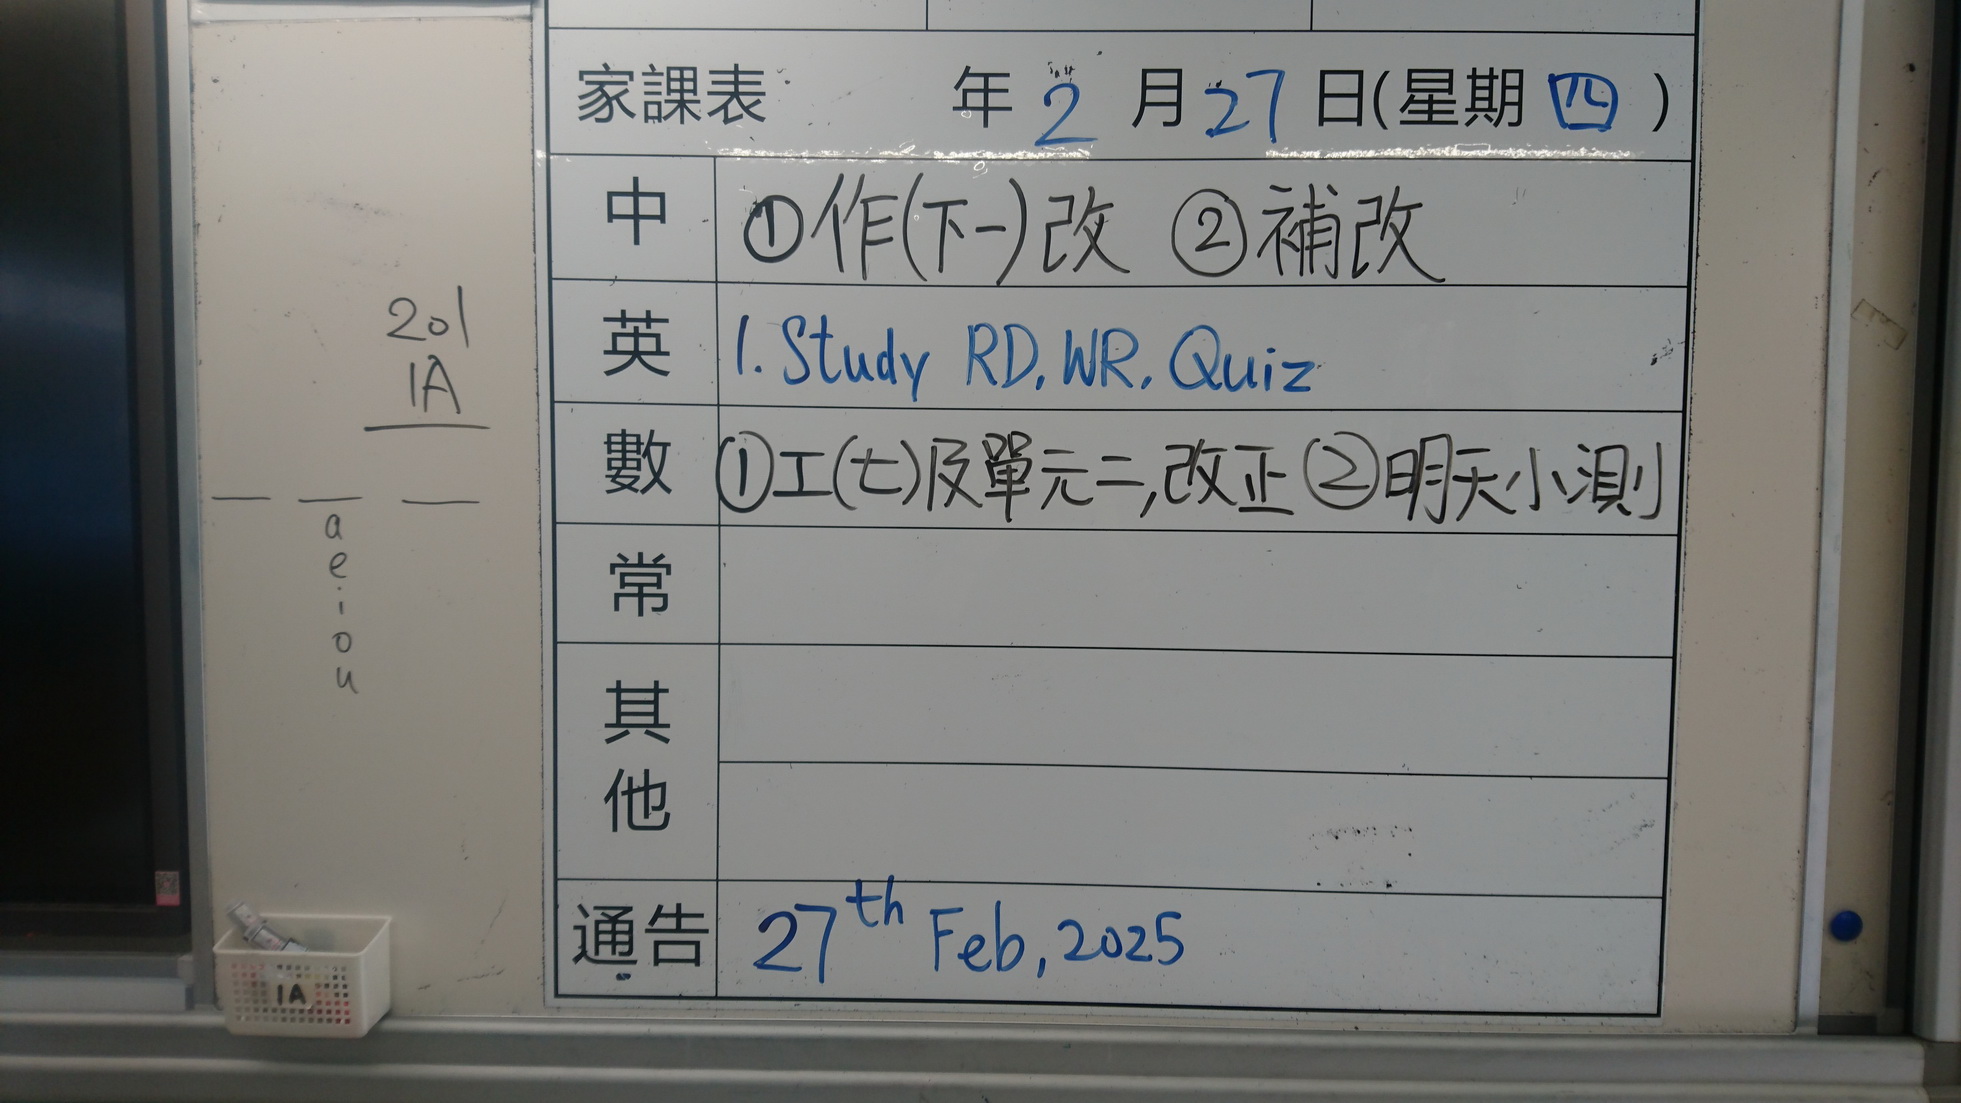 家課表 年 2 月 27 日(星期 四 )
中 ①作(下一)改 ②補改
英 1. Study RD, WR, Quiz
數 ①工(七)及單元二,改正 ②明天小測
常
其他
通告 27th Feb, 2025
201
1A
a
e
i
o
u
1A